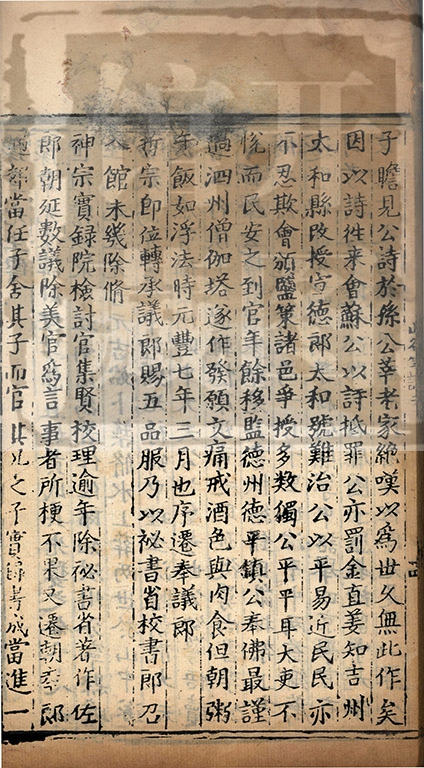 子瞻見公詩於孫公莘老家絶嘆以為世久無此作矣
因以詩徃来會蘇公以詩抵罪公亦罰金直姜知吉州
太和縣改授宣德郎太和號難治公以平易近民民亦
不忍欺會頒鹽策諸邑爭授多数獨公平平耳大吏不
悦而民安之到官年餘移監德州德平鎮公奉佛最謹
過泗州僧伽塔遂作發願文痛戒酒色與肉食但朝粥
午飯如浮法時元豐七年三月也序遷奉議郎
哲宗即位轉承議郎賜五品服乃以祕書省校書郎召
入館未幾除脩
神宗實録院檢討官集賢校理逾年除祕書省著作佐
郎朝延数議除美官為言事者所梗不果又遷朝奉郎
郊當任子舍其子而官其兄之子實録書成當進一